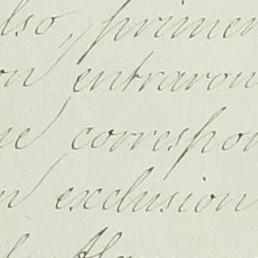 also, primer
on entraron
ue correspon
n exclusion